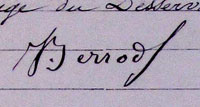 du Desserv
J. Berrod